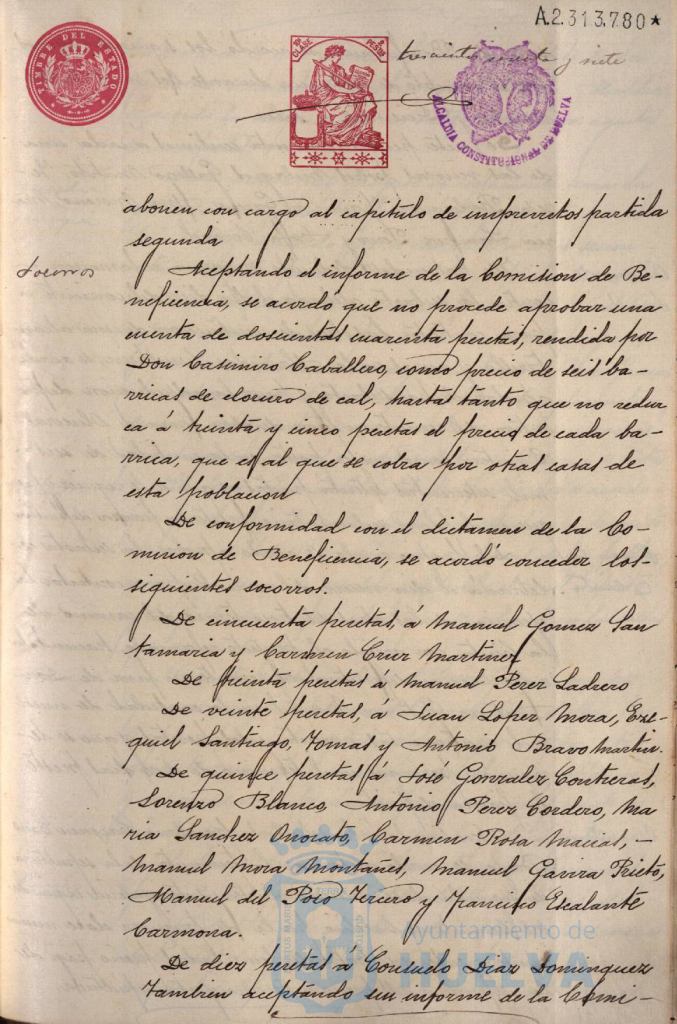 A.2.313.780*
TIMBRE DEL ESTADO
10ª CLASE 2 PESETAS
trescientos y siete
ALCALDIA CONSTITUCIONAL DE HUELVA
abonen con cargo al capitulo de imprevistos partida
segunda
Socorros
Aceptando el informe de la Comision de Be-
neficencia, se acordo que no procede aprobar una
cuenta de doscientas cuarenta pesetas, rendida por
Don Casimiro Caballero, como precio de seis ba-
rricas de cloruro de cal, hasta tanto que no reduz
ca á treinta y cinco pesetas el precio de cada ba-
rrica, que es al que se cobra por otras casas de
esta poblacion
De conformidad con el dictamen de la Co-
mision de Beneficencia, se acordó conceder los-
siguientes socorros.
De cincuenta pesetas, á Manuel Gomez San
tamaria y Carmen Cruz Martinez
De treinta pesetas á Manuel Perez Ladrero
De veinte pesetas, á Juan Lopez Mora, Eze-
quiel Santiago, Tomas y Antonio Bravo Martin.
De quince pesetas á José Gonzalez Contreras,
Lorenzo Blanco, Antonio Perez Cordero, Ma
ria Sanchez Onorato, Carmen Rosa Macias, -
Manuel Mora Montañes, Manuel Gavira Prieto,
Manuel del Poso Tercero y Francisco Escalante
Carmona.
De diez pesetas á Consuelo Diaz Dominguez
Tambien aceptando un informe de la Comi-
Ayuntamiento de
HUELVA